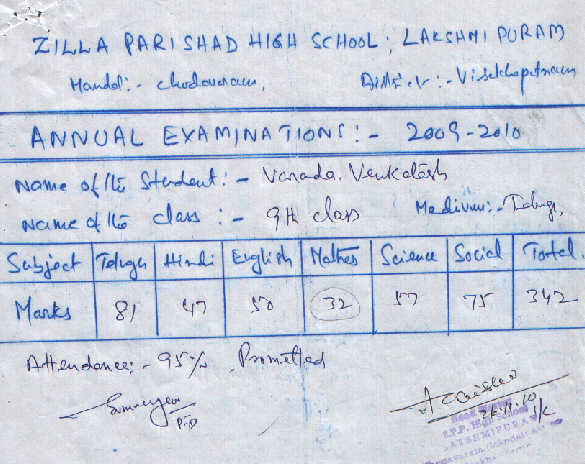 ZILLA PARISHAD HIGH SCHOOL; LAKSHMI PURAM
Mandal:- chodavaram, District:- Visakhapatnam
ANNUAL EXAMINATIONS:- 2009-2010
Name of the Student:- Varada. Venkatesh
Name of the class:- 9th class Medium:- Telugu,
Subject Telugu Hindi English Maths Science Social Total.
Marks 81 47 50 32 57 75 342
Attendance:- 95% Promotted